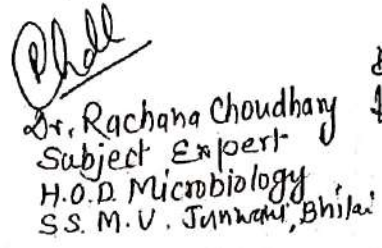 Dr. Rachana Choudhary
Subject Expert
H.O.D. Microbiology
S S. M. V. Junwani, Bhilai